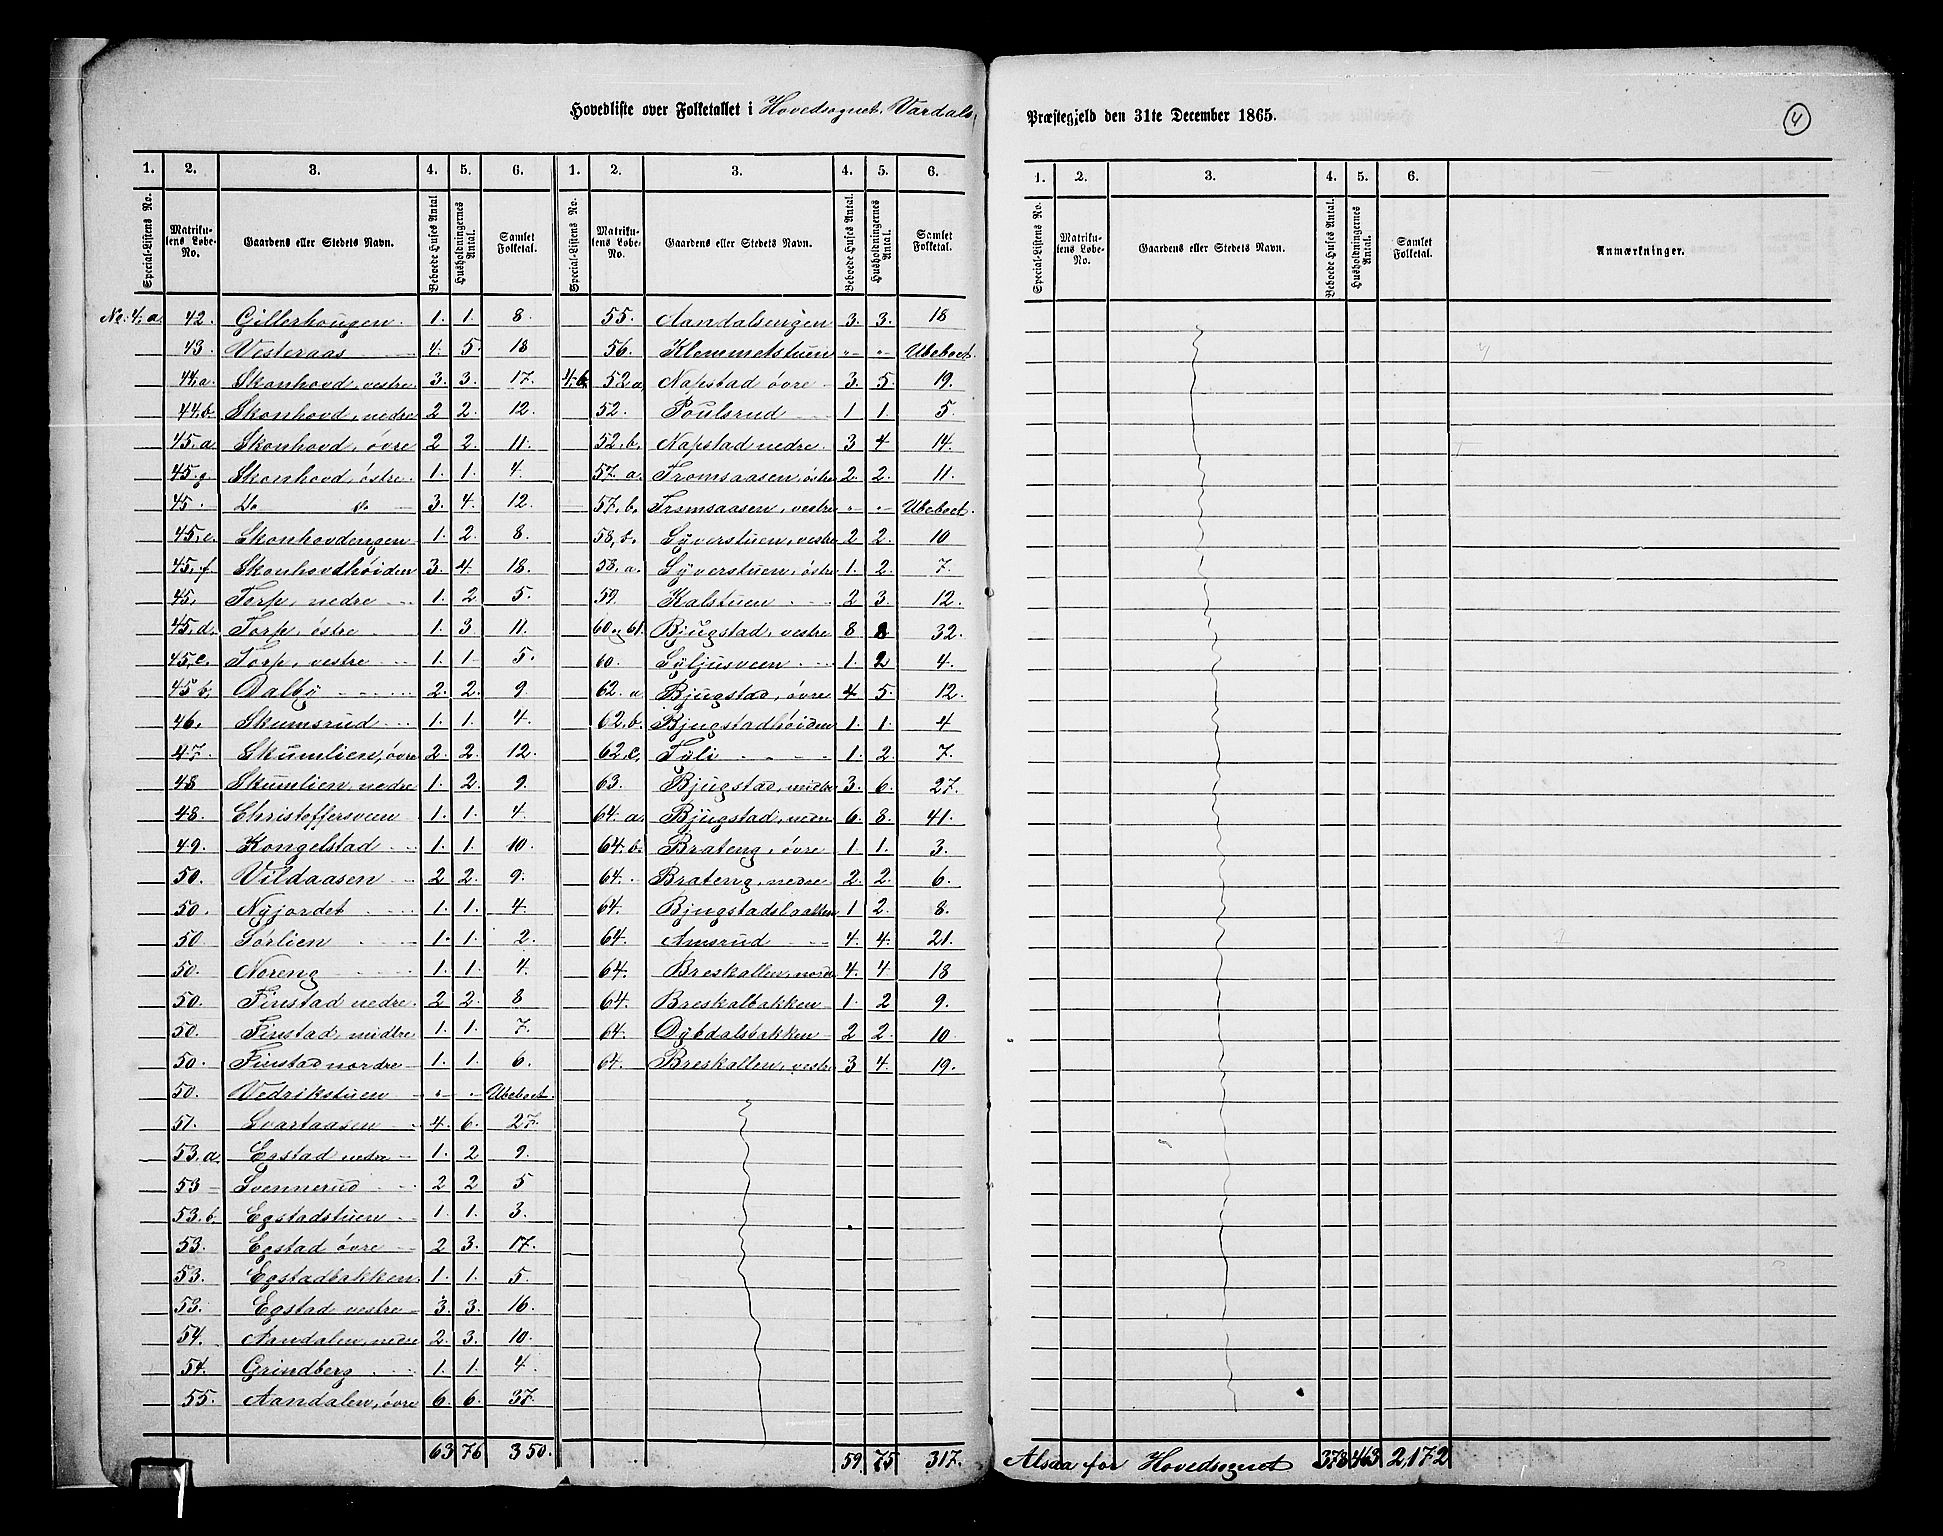 Hovedliste over Folketallet i Hovedsognet, Vardals Præstegjeld den 31te December 1865.
4
1. 2. 3. 4. 5. 6. 1. 2. 3. 4. 5. 6.
Special-Listens No. Matrikulens Løbe-No. Gaardens eller Stedets Navn. Beboede Huses Antal Husholdningernes Antal. Samlet Folketal. Special-Listens No. Matrikulens Løbe-No. Gaardens eller Stedets Navn. Beboede Huses Antal. Husholdningernes Antal. Samlet Folketal.
No. 4, a. 42. Gillerhougen. 1. 1. 8.
43. Vesteraas 4. 5. 18
44, a. Skonhovd, vestre 3. 3. 17.
44, b. Skonhovd, nedre 2 2. 12.
45, a. Skonhovd, övre 2 2. 11.
45, g. Skonhovd, östre 1. 1. 4.
45. Do do 3. 4. 12.
45, c. Skonhovdengen 1. 2. 8.
45, f. Skonhovdhöiden 3. 4. 18.
45, Torp, nedre 1. 2 5.
45, d. Torp, östre 1. 3 11.
45, e. Torp, vestre 1. 1. 5.
45, b. Dalby 2. 2. 9
46. Skumsrud 1. 1. 4.
47. Skumlien, övre 2. 2. 12.
48 Skumlien, nedre 1. 2. 9.
48. Christoffersveen 1. 1. 4.
49. Kongelstad 1. 1. 10.
50. Vildaasen 2 2. 9.
50. Nyjordet 1. 1. 4.
50 Sörlien 1. 1. 2.
50. Noreng 1. 1. 4.
50. Finstad nedre 2 2. 8
50. Finstad, midtre 1. 1. 7.
50. Finstad nordre 1. 1. 6.
50. Vedrikstuen " " Ubeboet.
51. Svartaasen 4. 6. 27.
53, a. Egstad nedre 1. 2 9.
53 Svennerud 2 2 5
53, b. Egstadstuen 1. 1. 3.
53. Egstad övre 2 3. 17.
53. Egstadbakken 1. 1. 5.
53. Egstad vestre 3. 3. 16.
54. Aandalen, nedre 2. 3. 10.
54. Grindberg 1. 1. 4.
55. Aandalen, övre 6. 6. 37.
63 76 350.
55. Aandalsengen 3. 3. 18
56. Klemmetstuen " " Ubeboet.
4, b. 52, a Napstad övre 3. 5. 19.
52. Poulsrud 1 1. 5.
52, b. Napstad nedre. 3 4 14.
57, a. Tromsaasen, östre 2. 2. 11.
57, b. Tromsaasen, vestre " " Ubeboet.
58, b. Syverstuen, vestre 2 2. 10
58, a. Syverstuen, östre 1. 2. 7.
59. Kalstuen 2 3. 12.
60 og 61. Bjugstad, vestre 8 8 32.
60. Syljusveen 1. 2 4.
62. a Bjugstad, övre 4 5. 12.
62, b. Bjugstadhöiden 1. 1. 4
62, c. Tyli 1. 2. 7.
63. Bjugstad, midtre 3. 6. 27.
64. a. Bjugstad, nedre 6. 8. 41.
64, b. Brateng, övre 1 1. 3.
64. Brateng, nedre 2. 2. 6.
64. Bjugstadslaatten 1 2. 8.
64. Amsrud 4. 4. 21.
64. Breskallen, nordre 4. 4 18
64. Breskalbakken 1. 2 9.
64. Dybdalsbakken 2 2. 10
64. Breskallen, vestre 3 4. 19.
59 75 317.
1. 2. 3. 4. 5. 6.
Special-Listens No. Matrikulens Løbe-No. Gaardens eller Stedets Navn. Beboede Huses Antal. Husholdningernes Antal. Samlet Folketal. Anmærkninger.
Alsaa for Hovedsognet 378 463 2,172